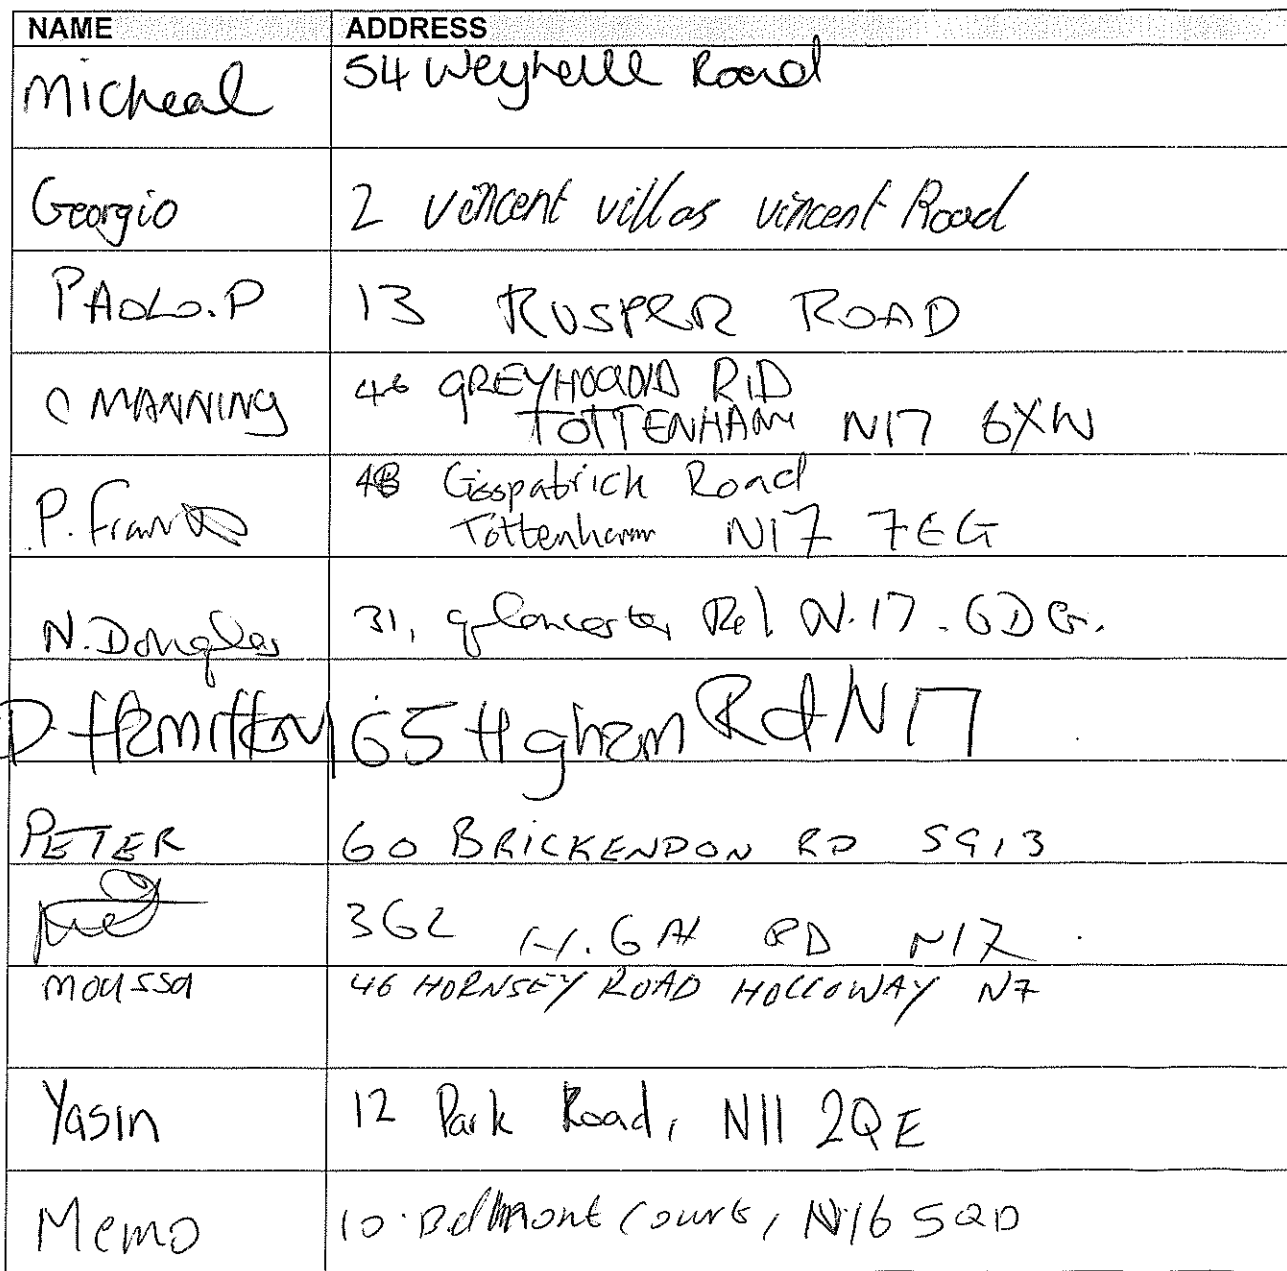 NAME ADDRESS
Micheal 54 Weyhill Road
Georgio 2 Vincent villas vincent Road
PAOLO.P 13 RUSPER ROAD
C MANNING 46 GREYHOUND RD
TOTTENHAM N17 6XW
P. 48 Gospatrick Road
Tottenham N17 7EG
N. Douglas 31, gloucester Rd. N.17. 6DG.
D Hamilton 65 Higham Rd N17
PETER 60 BRICKENDON RD SG13
362 RD N17
Moussa 46 HORNSEY ROAD HOLLOWAY N7
Yasin 12 Park Road, N11 2QE
Memo 10 Belmont Court, N16 5QD